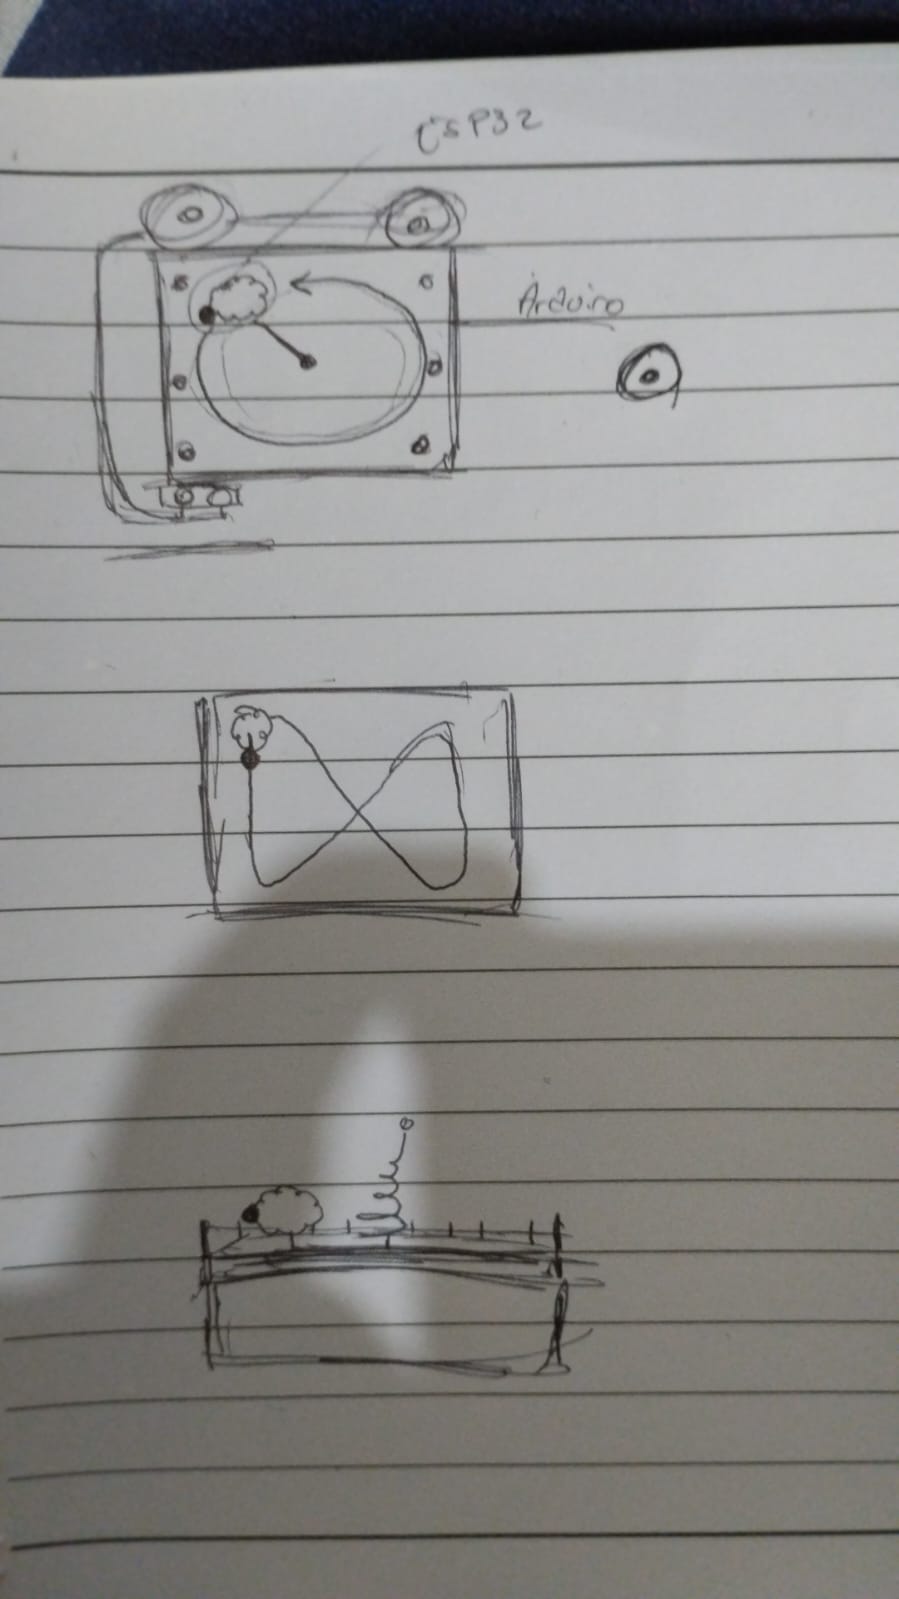 ESP32
Arduino